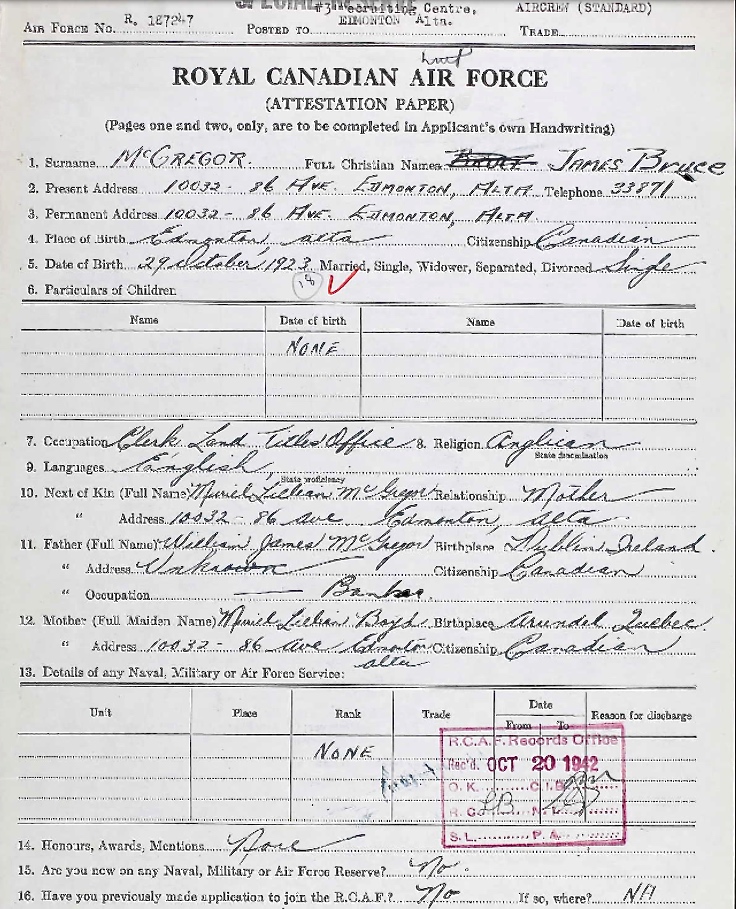 #3 Recruiting Centre, AIRCREW (STANDARD)
AIR FORCE No. R. 187247 POSTED TO EDMONTON Alta. TRADE
ROYAL CANADIAN AIR FORCE
(ATTESTATION PAPER)
(Pages one and two, only, are to be completed in Applicant's own Handwriting)
1. Surname McGREGOR. FULL Christian Names JAMES Bruce
2. Present Address 10032 - 86 AVE. EDMONTON, ALTA Telephone 33871
3. Permanent Address 10032 - 86 AVE. EDMONTON, ALTA.
4. Place of Birth Edmonton, alta Citizenship Canadian
5. Date of Birth 29 October, 1923 Married, Single, Widower, Separated, Divorced Single
18
6. Particulars of Children
Name Date of birth Name Date of birth
NONE
7. Occupation Clerk Land Titles Office 8. Religion Anglican
State denomination
9. Languages English,
State proficiency
10. Next of Kin (Full Name) Muriel Lillian McGregor Relationship Mother
" Address 10032 - 86 Ave Edmonton, alta.
11. Father (Full Name) William James McGregor Birthplace Dublin Ireland.
" Address Unknown Citizenship Canadian
" Occupation — Banker.
12. Mother (Full Maiden Name) Muriel Lillian Boyd Birthplace Arundel Quebec.
" Address 10032 - 86 Ave Edmonton Citizenship Canadian
alta
13. Details of any Naval, Military or Air Force Service:
Unit Place Rank Trade Date Reason for discharge
From To
NONE
R.C.A.F. Records Office
Rec'd. OCT 20 1942
O.K. C.I.B.
R.C. LB N.L.
S.L. P.A.
14. Honours, Awards, Mentions None
15. Are you now on any Naval, Military or Air Force Reserve? No.
16. Have you previously made application to join the R.C.A.F.? No If so, where? NA